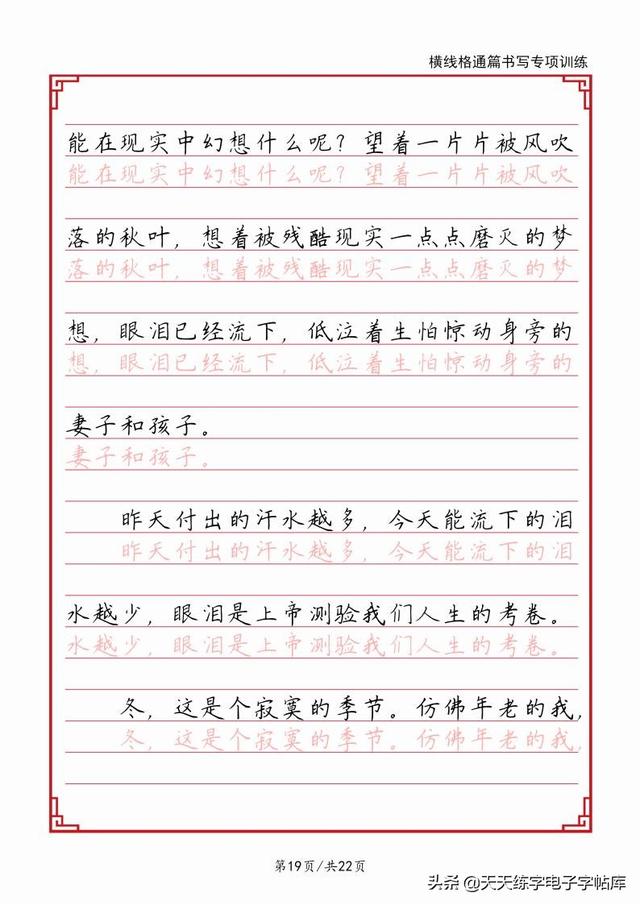 横线格通篇书写专项训练
能在现实中幻想什么呢？望着一片片被风吹
能在现实中幻想什么呢？望着一片片被风吹
落的秋叶，想着被残酷现实一点点磨灭的梦
落的秋叶，想着被残酷现实一点点磨灭的梦
想，眼泪已经流下，低泣着生怕惊动身旁的
想，眼泪已经流下，低泣着生怕惊动身旁的
妻子和孩子。
妻子和孩子。
昨天付出的汗水越多，今天能流下的泪
昨天付出的汗水越多，今天能流下的泪
水越少，眼泪是上帝测验我们人生的考卷。
水越少，眼泪是上帝测验我们人生的考卷。
冬，这是个寂寞的季节。仿佛年老的我，
冬，这是个寂寞的季节。仿佛年老的我，
第19页/共22页
头条 @天天练字电子字帖库